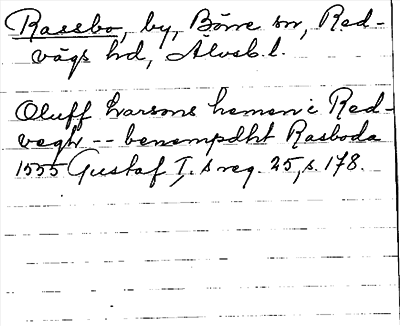 Rassbo, by, Börre sn, Red-
vägs hd, Älvsb. l.
Oluff Larsons hemen i Red-
vegh -- benempdht Rasboda
1555 Gustaf I:s reg. 25, s. 178.